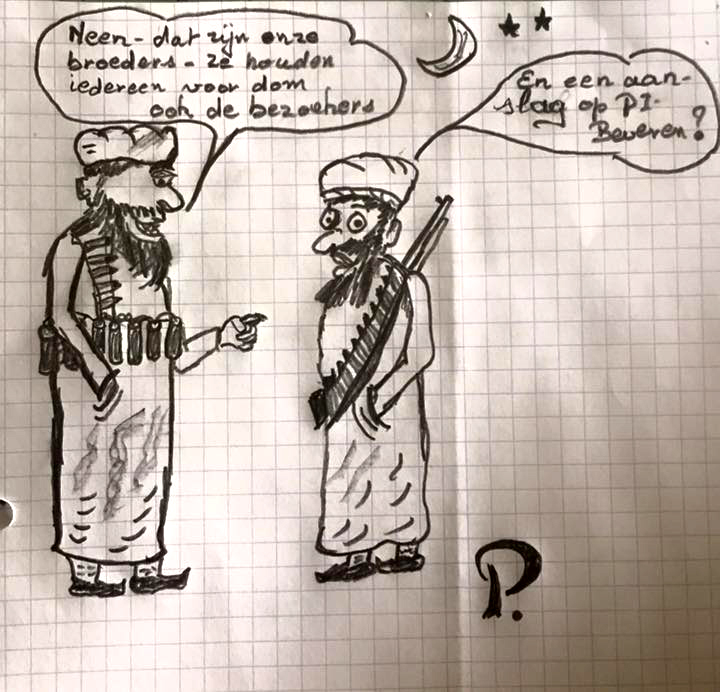 Neen - dat zijn onze
broeders - ze houden
iedereen voor dom
ook de bezoekers
En een aan-
slag op PI-
Beveren?
P.